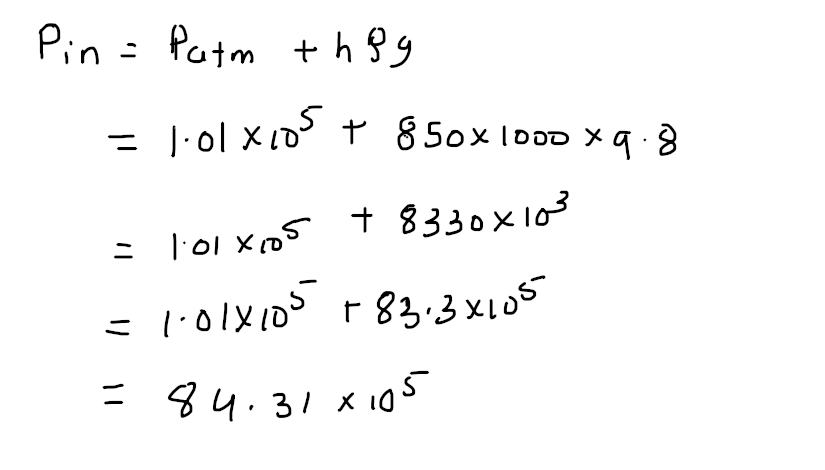 Pin = Patm + hρg
= 1.01 × 10⁵ + 850 × 1000 × 9.8
= 1.01 × 10⁵ + 8330 × 10³
= 1.01 × 10⁵ + 83.3 × 10⁵
= 84.31 × 10⁵